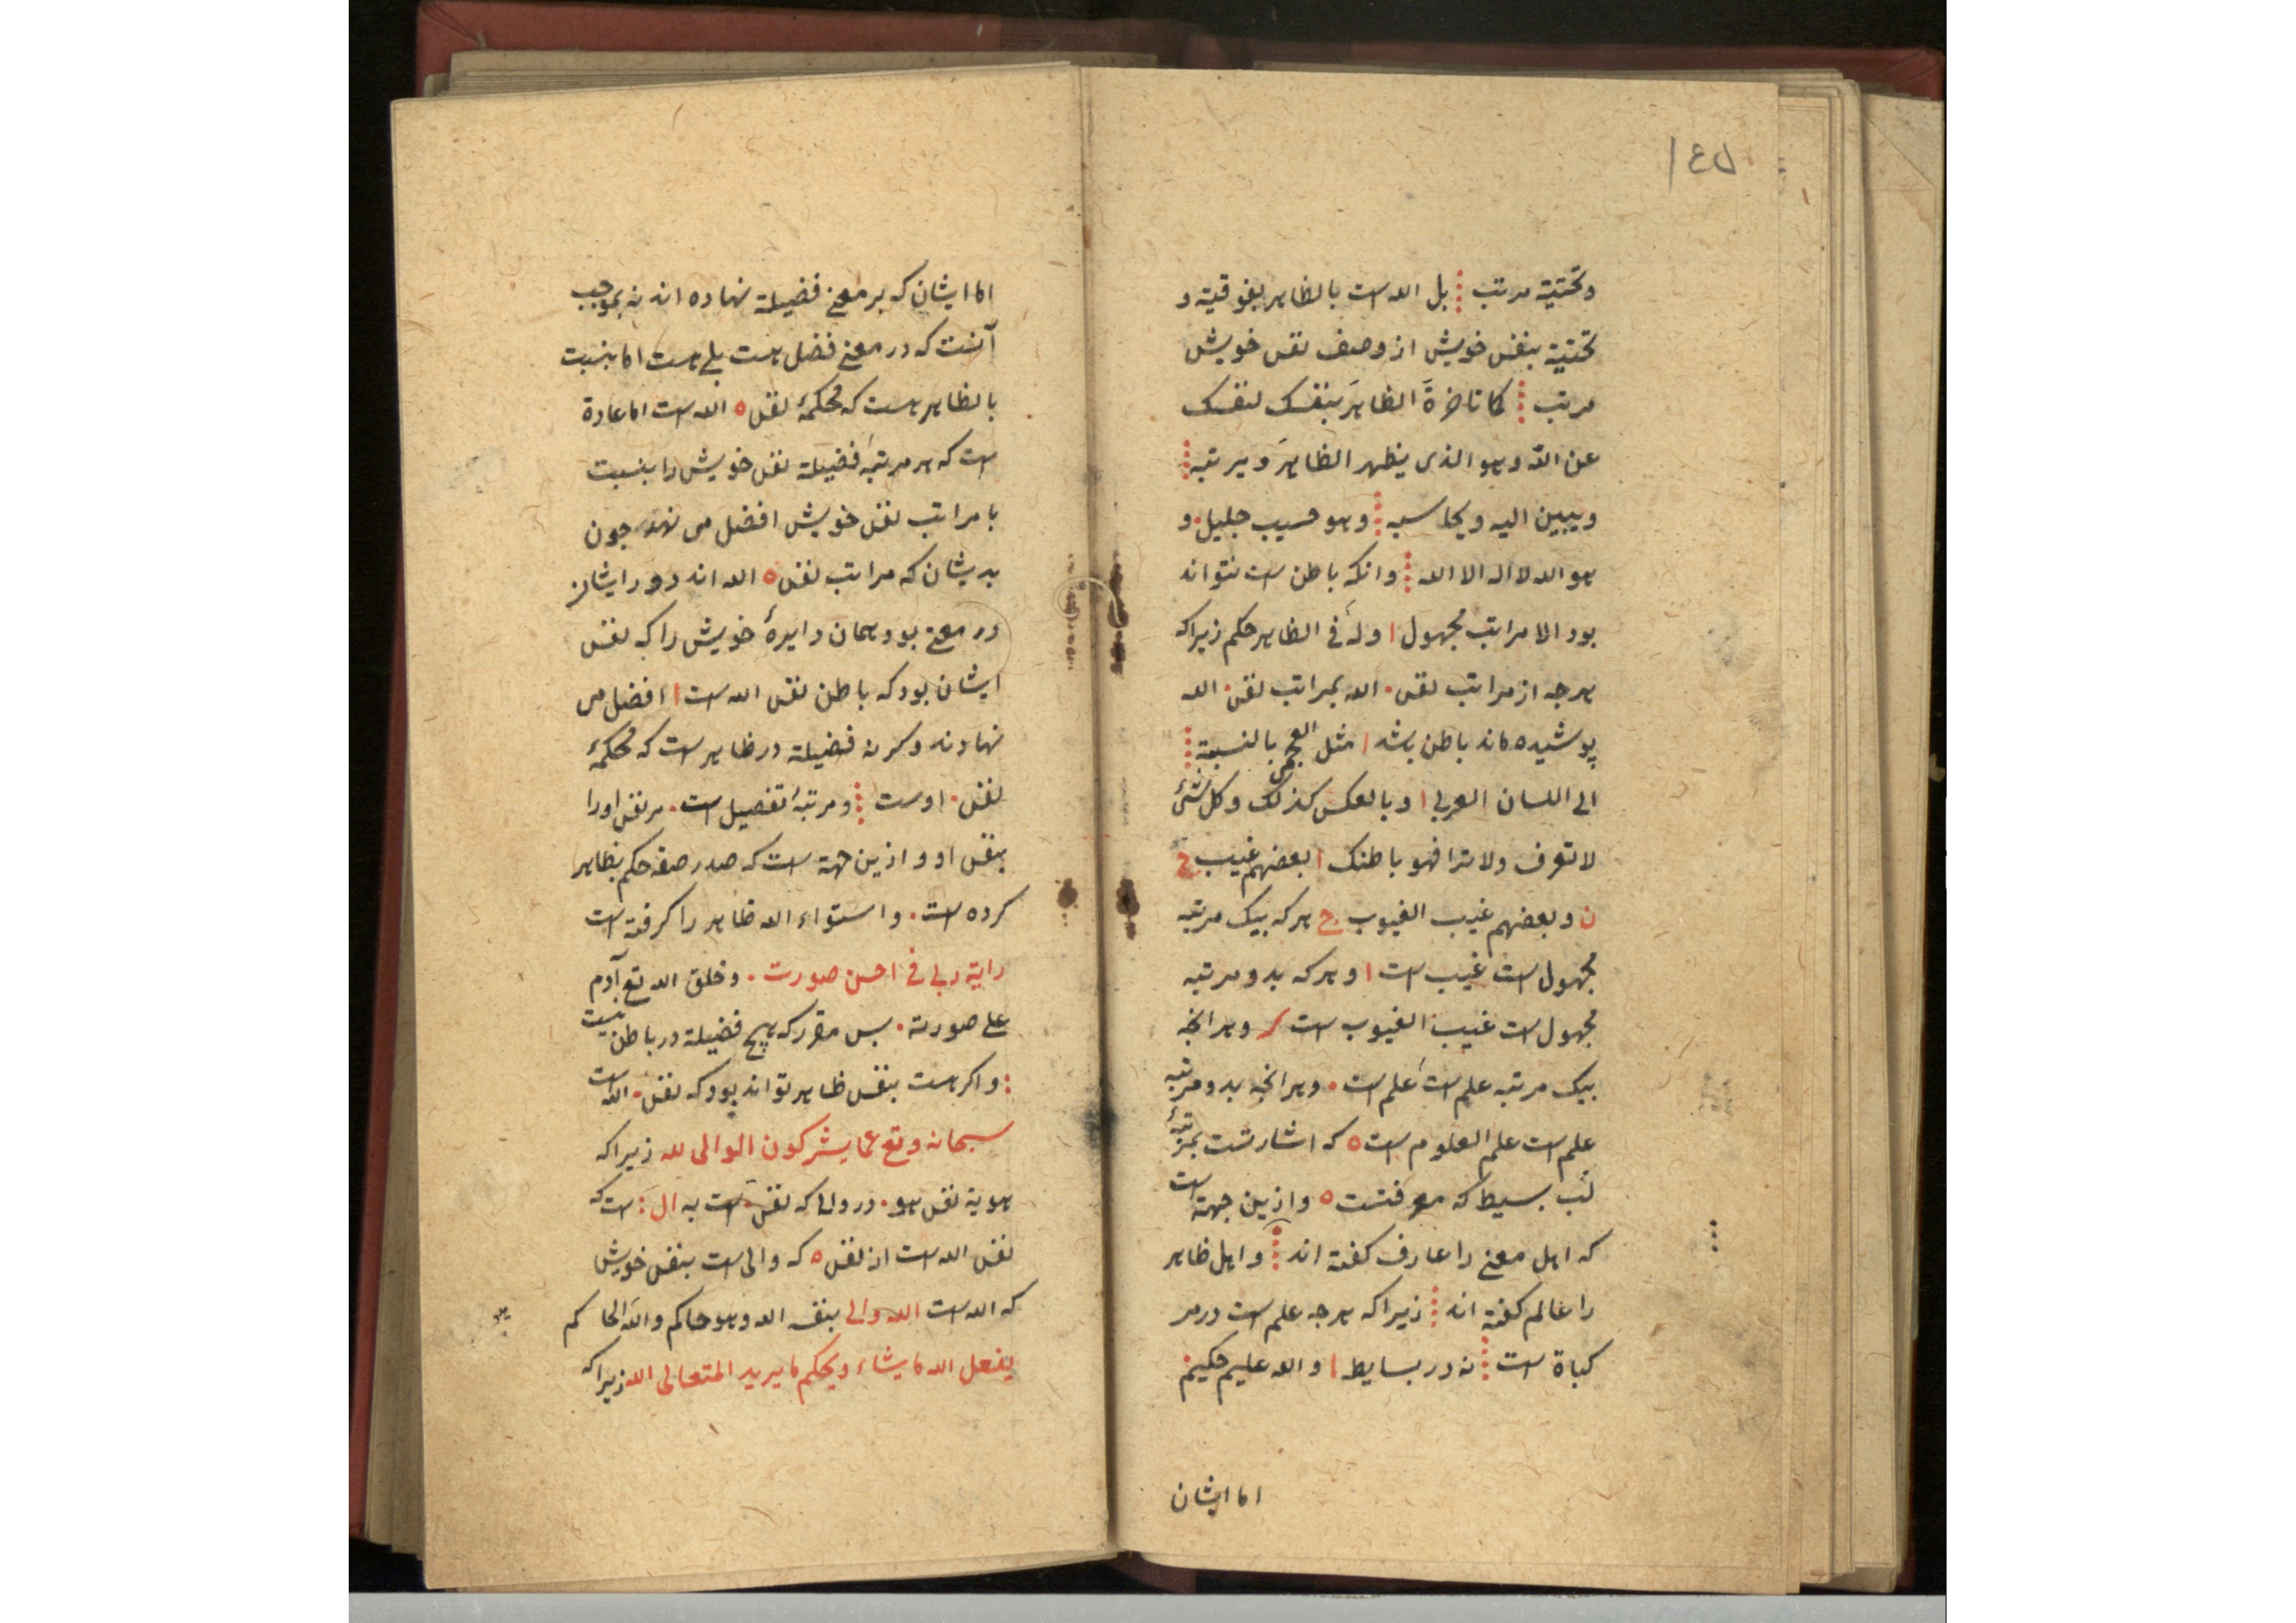 ۱٤۵
وتحتیة مرتب بل الله است بالظاهر بفوقیة و
تحتیة بنفس خویش از وصف نفس خویش
مرتب کما تاخرة الظاهر بنفسک لنفسک
عن الله وهو الذی یظهر الظاهر ویرتبه
ویبین الیه ویحاسبه وهو حسیب جلیل و
هو الله لا اله الا الله وانکه باطن است نتواند
بود الا مراتب مجهول ا وله فی الظاهر حکم زیراکه
هرجه از مراتب نفس الله بمراتب نفس الله
پوشیده ماند باطن باشد ا مثل العجمی بالنسبة
الی اللسان العربی ا وبالعکس کذلک وکل شئ
لا تعرف ولا ترا فهو باطنک ا بعضهم غیب ج
ن وبعضهم غیب الغیوب ج هرکه بیک مرتبه
مجهول است غیب است ا وهرکه بدو مرتبه
مجهول است غیب الغیوب است وهرانجه
بیک مرتبه علم است علم است وهرانجه بدو مرتبه
علم است علم العلوم است ه که اشارتست بمرتبهٔ
لب بسیط که معرفتست ه وازین جهة است
که اهل معنی را عارف کفته اند واهل ظاهر
را عالم کفته اند زیراکه هرجه علم است در مر
کباة است نه در بسایط ا والله علیم حکیم
اما ایشان
اما ایشان که بر معنی فضیلة نهاده اند نه بموجب
آنست که در معنی فضل هست بلی هست اما بنسبت
بالظاهر هست که محکمهٔ نفس ه الله است اما عادة
است که هر مرتبهٔ فضیلة نفس خویش را بنسبت
با مراتب نفس خویش افضل می نهد جون
بدیشان که مراتب نفس ه الله اند دور ایشان
در معنی بود همان دایرهٔ خویش را که نفس
ایشان بود که باطن نفس الله است ا افضل می
نهادند وکرنه فضیلة در ظاهر است که محکمهٔ
نفس اوست ومرتبهٔ تفصیل است مر نفس اورا
بنفس او وازین جهة است که صدر صفه حکم بظاهر
کرده است واستواء الله ظاهر را کرفته است
رایة ربی فی احسن صورت وخلق الله تع آدم
علی صورته بس مقرر که هیچ فضیلة در باطن نیست
واکر هست بنفس ظاهر تواند بود که نفس الله است
سبحانه وتع عما یشرکون الوالی لله زیراکه
هویة نفس هو در والی که نفس است به ال است که
نفس الله است از نفس ه که والی است بنفس خویش
که الله است الله والی بنفسه الله وهو حاکم والله الحاکم
یفعل الله ما یشاء ویحکم ما یرید المتعالی الله زیراکه